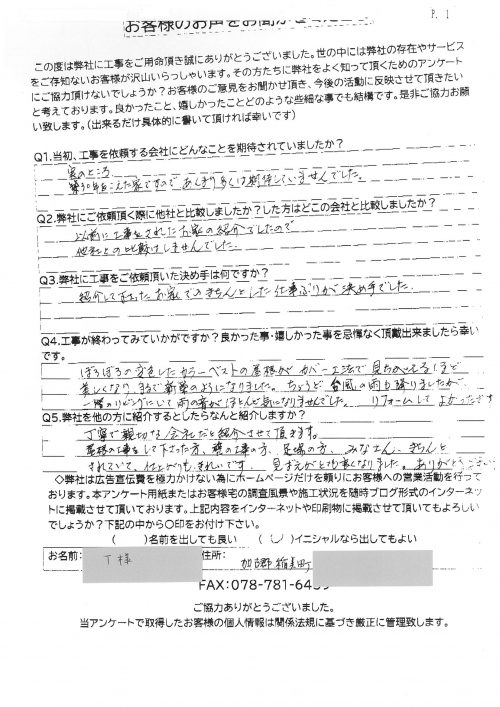 P. 1
お客様のお声をお聞か
この度は弊社に工事をご用命頂き誠にありがとうございました。世の中には弊社の存在やサービス
をご存知ないお客様が沢山いらっしゃいます。その方たちに弊社をよく知って頂くためのアンケート
にご協力頂けないでしょうか？お客様のご意見をお聞かせ頂き、今後の活動に反映させて頂きたい
と考えております。良かったこと、嬉しかったことどのような些細な事でも結構です。是非ご協力お願
い致します。(出来るだけ具体的に書いて頂ければ幸いです)
Q1.当初、工事を依頼する会社にどんなことを期待されていましたか？
実のところ
築30年をこえた家ですので あんまり多くは期待していませんでした。
Q2.弊社にご依頼頂く際に他社と比較しましたか？した方はどこの会社と比較しましたか？
以前に工事をされたお家の紹介でしたので
他社との比較はしませんでした。
Q3.弊社に工事をご依頼頂いた決め手は何ですか？
紹介して下さったお家でのきちんとした仕事ぶりが決め手でした。
Q4.工事が終わってみていかがですか？良かった事・嬉しかった事を忌憚なく頂戴出来ましたら幸い
です。
ぼろぼろの変色したカラーベストの屋根がカバー工法で見ちがえるほど
美しくなり、まるで新築のようになりました。ちょうど台風の雨も降りましたが、
一階のリビングにいて雨の音がほとんど気になりませんでした。 リフォームしてよかったです
Q5.弊社を他の方に紹介するとしたらなんと紹介しますか？
丁寧で親切な会社だと紹介させて頂きます。
屋根の工事をして下さった方、壁の工事の方、足場の方、みなさん、きちんと
されていて、仕上がりも、きれいです。 見ちがえて
ありがとうござい
◇弊社は広告宣伝費を極力かけない為にホームページだけを頼りにお客様への営業活動を行って
おります。本アンケート用紙またはお客様宅の調査風景や施工状況を随時ブログ形式のインターネッ
トに掲載させて頂いております。上記内容をインターネットや印刷物に掲載させて頂いてもよろしい
でしょうか？下記の中から〇印をお付け下さい。
( )名前を出しても良い ( 〇 )イニシャルなら出してもよい
お名前: T様 住所: 加古郡稲美町
FAX:078-781-64
ご協力ありがとうございました。
当アンケートで取得したお客様の個人情報は関係法規に基づき厳正に管理致します。